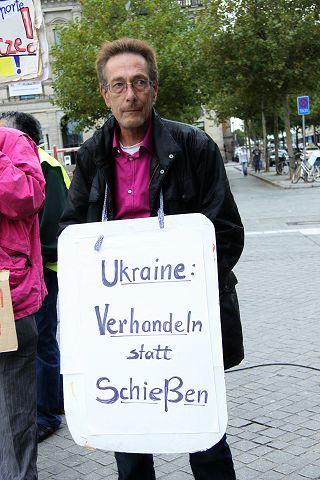 Ukraine:
Verhandeln
statt
Schießen